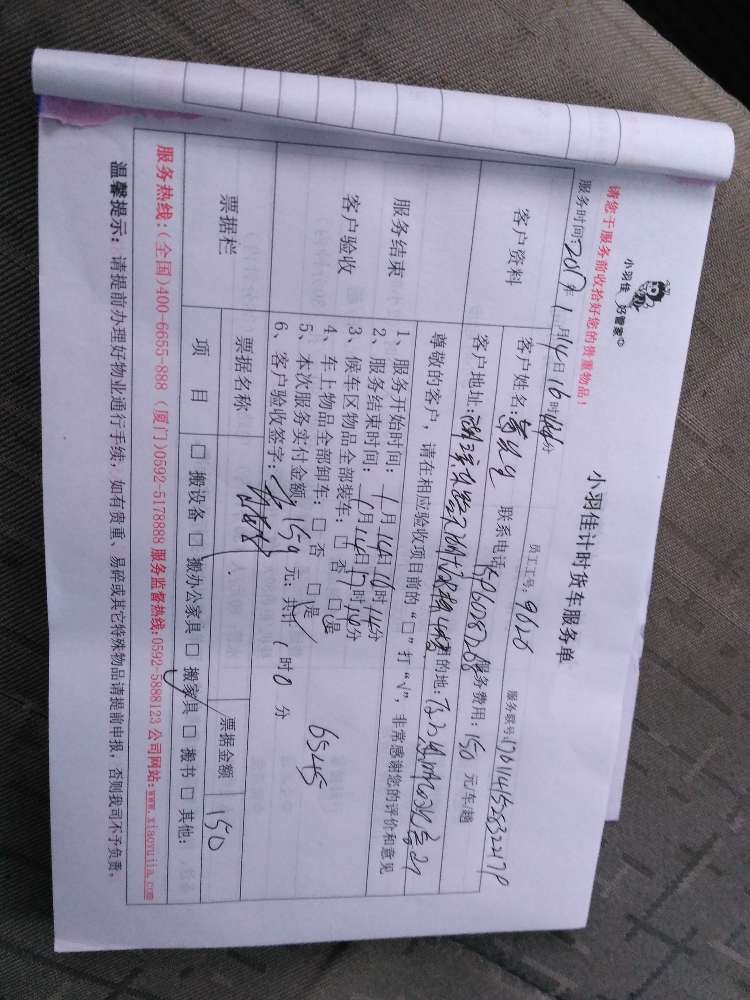 小羽佳 好管家
小羽佳计时货车服务单
请您于服务前收拾好您的贵重物品！
服务时间：2017年1月14日16时44分 员工工号：9626 服务联号：
客户资料
客户姓名： 联系电话： 服务费用：150元/车/趟
客户地址： 目的地：
服务结束
客户验收
尊敬的客户，请在相应验收项目前的“□”打“√”，非常感谢您的评价和意见
1、服务开始时间：1月14日16时14分
2、服务结束时间：1月14日17时14分
3、候车区物品全部装车：□ 否 □是
4、车上物品全部卸车：□ 否 □是
5、本次服务实付金额：150元；共计1时0分 6545
6、客户验收签字：
票据栏
票据名称 票据金额 150
项 目 □ 搬设备 □ 搬办公家具 □ 搬家具 □ 搬书 □ 其他：
服务热线：(全国)400-6655-888 (厦门)0592-5178888 服务监督热线：0592-5888123 公司网站：www.xiaoyujia.com
温馨提示：请提前办理好物业通行手续，如有贵重、易碎或其它特殊物品请提前申报，否则我司不予负责。